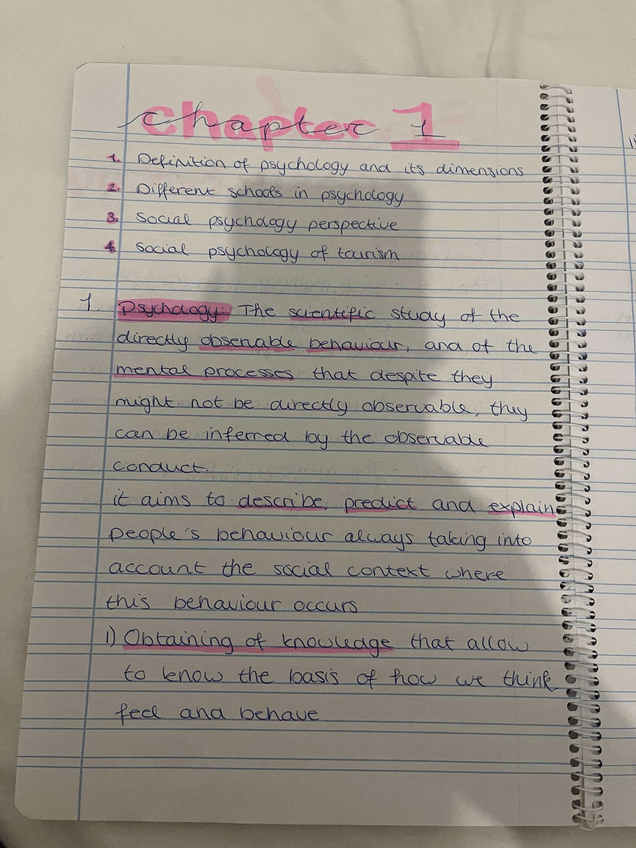 chapter 1
1. Definition of psychology and its dimensions
2. Different schools in psychology
3. Social psychology perspective
4. Social psychology of tourism
1. Psychology: The scientific study of the
directly observable behaviour, and of the
mental processes that despite they
might not be directly observable, they
can be inferred by the observable
conduct.
it aims to describe, predict and explain
people's behaviour always taking into
account the social context where
this behaviour occurs
1) Obtaining of knowledge that allow
to know the basis of how we think
feel and behave